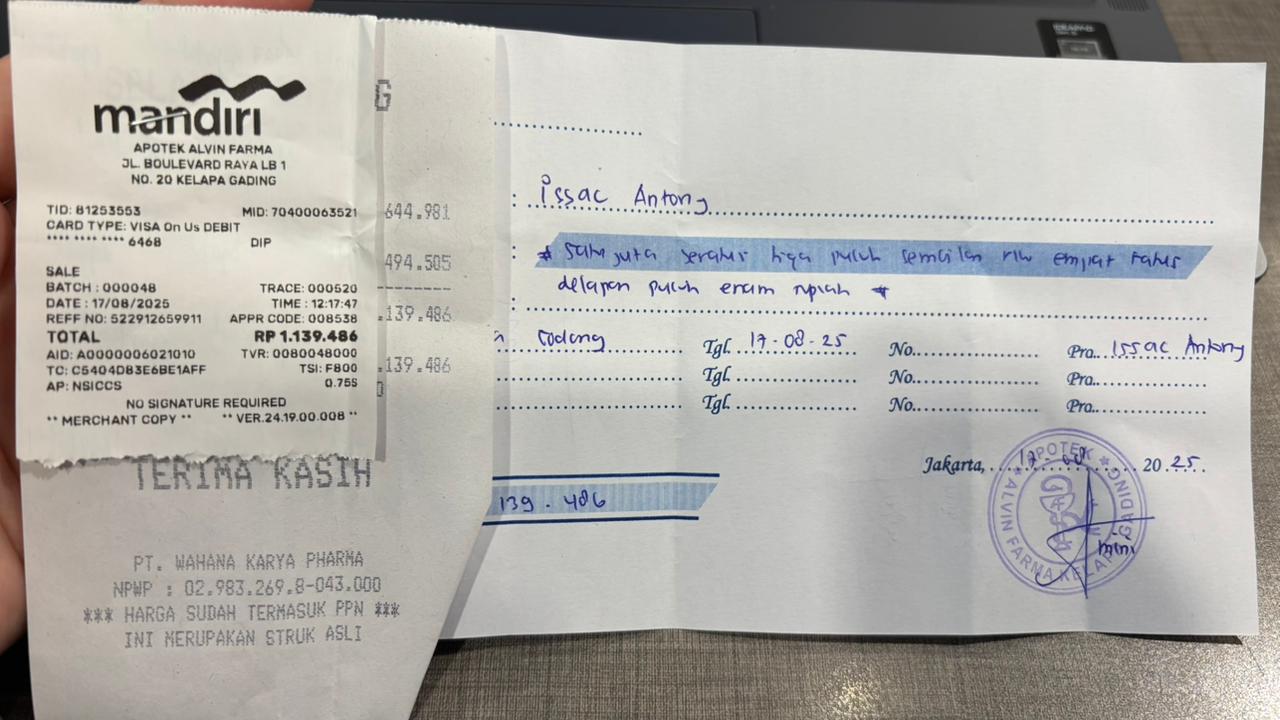 mandiri
APOTEK ALVIN FARMA
JL. BOULEVARD RAYA LB 1
NO. 20 KELAPA GADING
TID: 81253553 MID: 70400063521
CARD TYPE: VISA On Us DEBIT
**** **** **** 6468 DIP
SALE
BATCH : 000048 TRACE: 000520
DATE : 17/08/2025 TIME : 12:17:47
REFF NO: 522912659911 APPR CODE: 008538
TOTAL RP 1.139.486
AID: A0000006021010 TVR: 0080048000
TC: C5404D83E6BE1AFF TSI: F800
AP: NSICCS 0.75S
NO SIGNATURE REQUIRED
** MERCHANT COPY ** ** VER.24.19.00.008 **
G
644.981
494.505
.139.486
.139.486
TERIMA KASIH
PT. WAHANA KARYA PHARMA
NPWP : 02.983.269.8-043.000
*** HARGA SUDAH TERMASUK PPN ***
INI MERUPAKAN STRUK ASLI
: Issac Antony
: * satu juta seratus tiga puluh sembilan ribu empat ratus
delapan puluh enam rupiah *
:
Tgl. 17-08-25 No. Pro. Issac Antony
Tgl. No. Pro.
Tgl. No. Pro.
Jakarta, 17-08 2025
139.486
APOTEK
ALVIN FARMA KELAPA GADING
mini